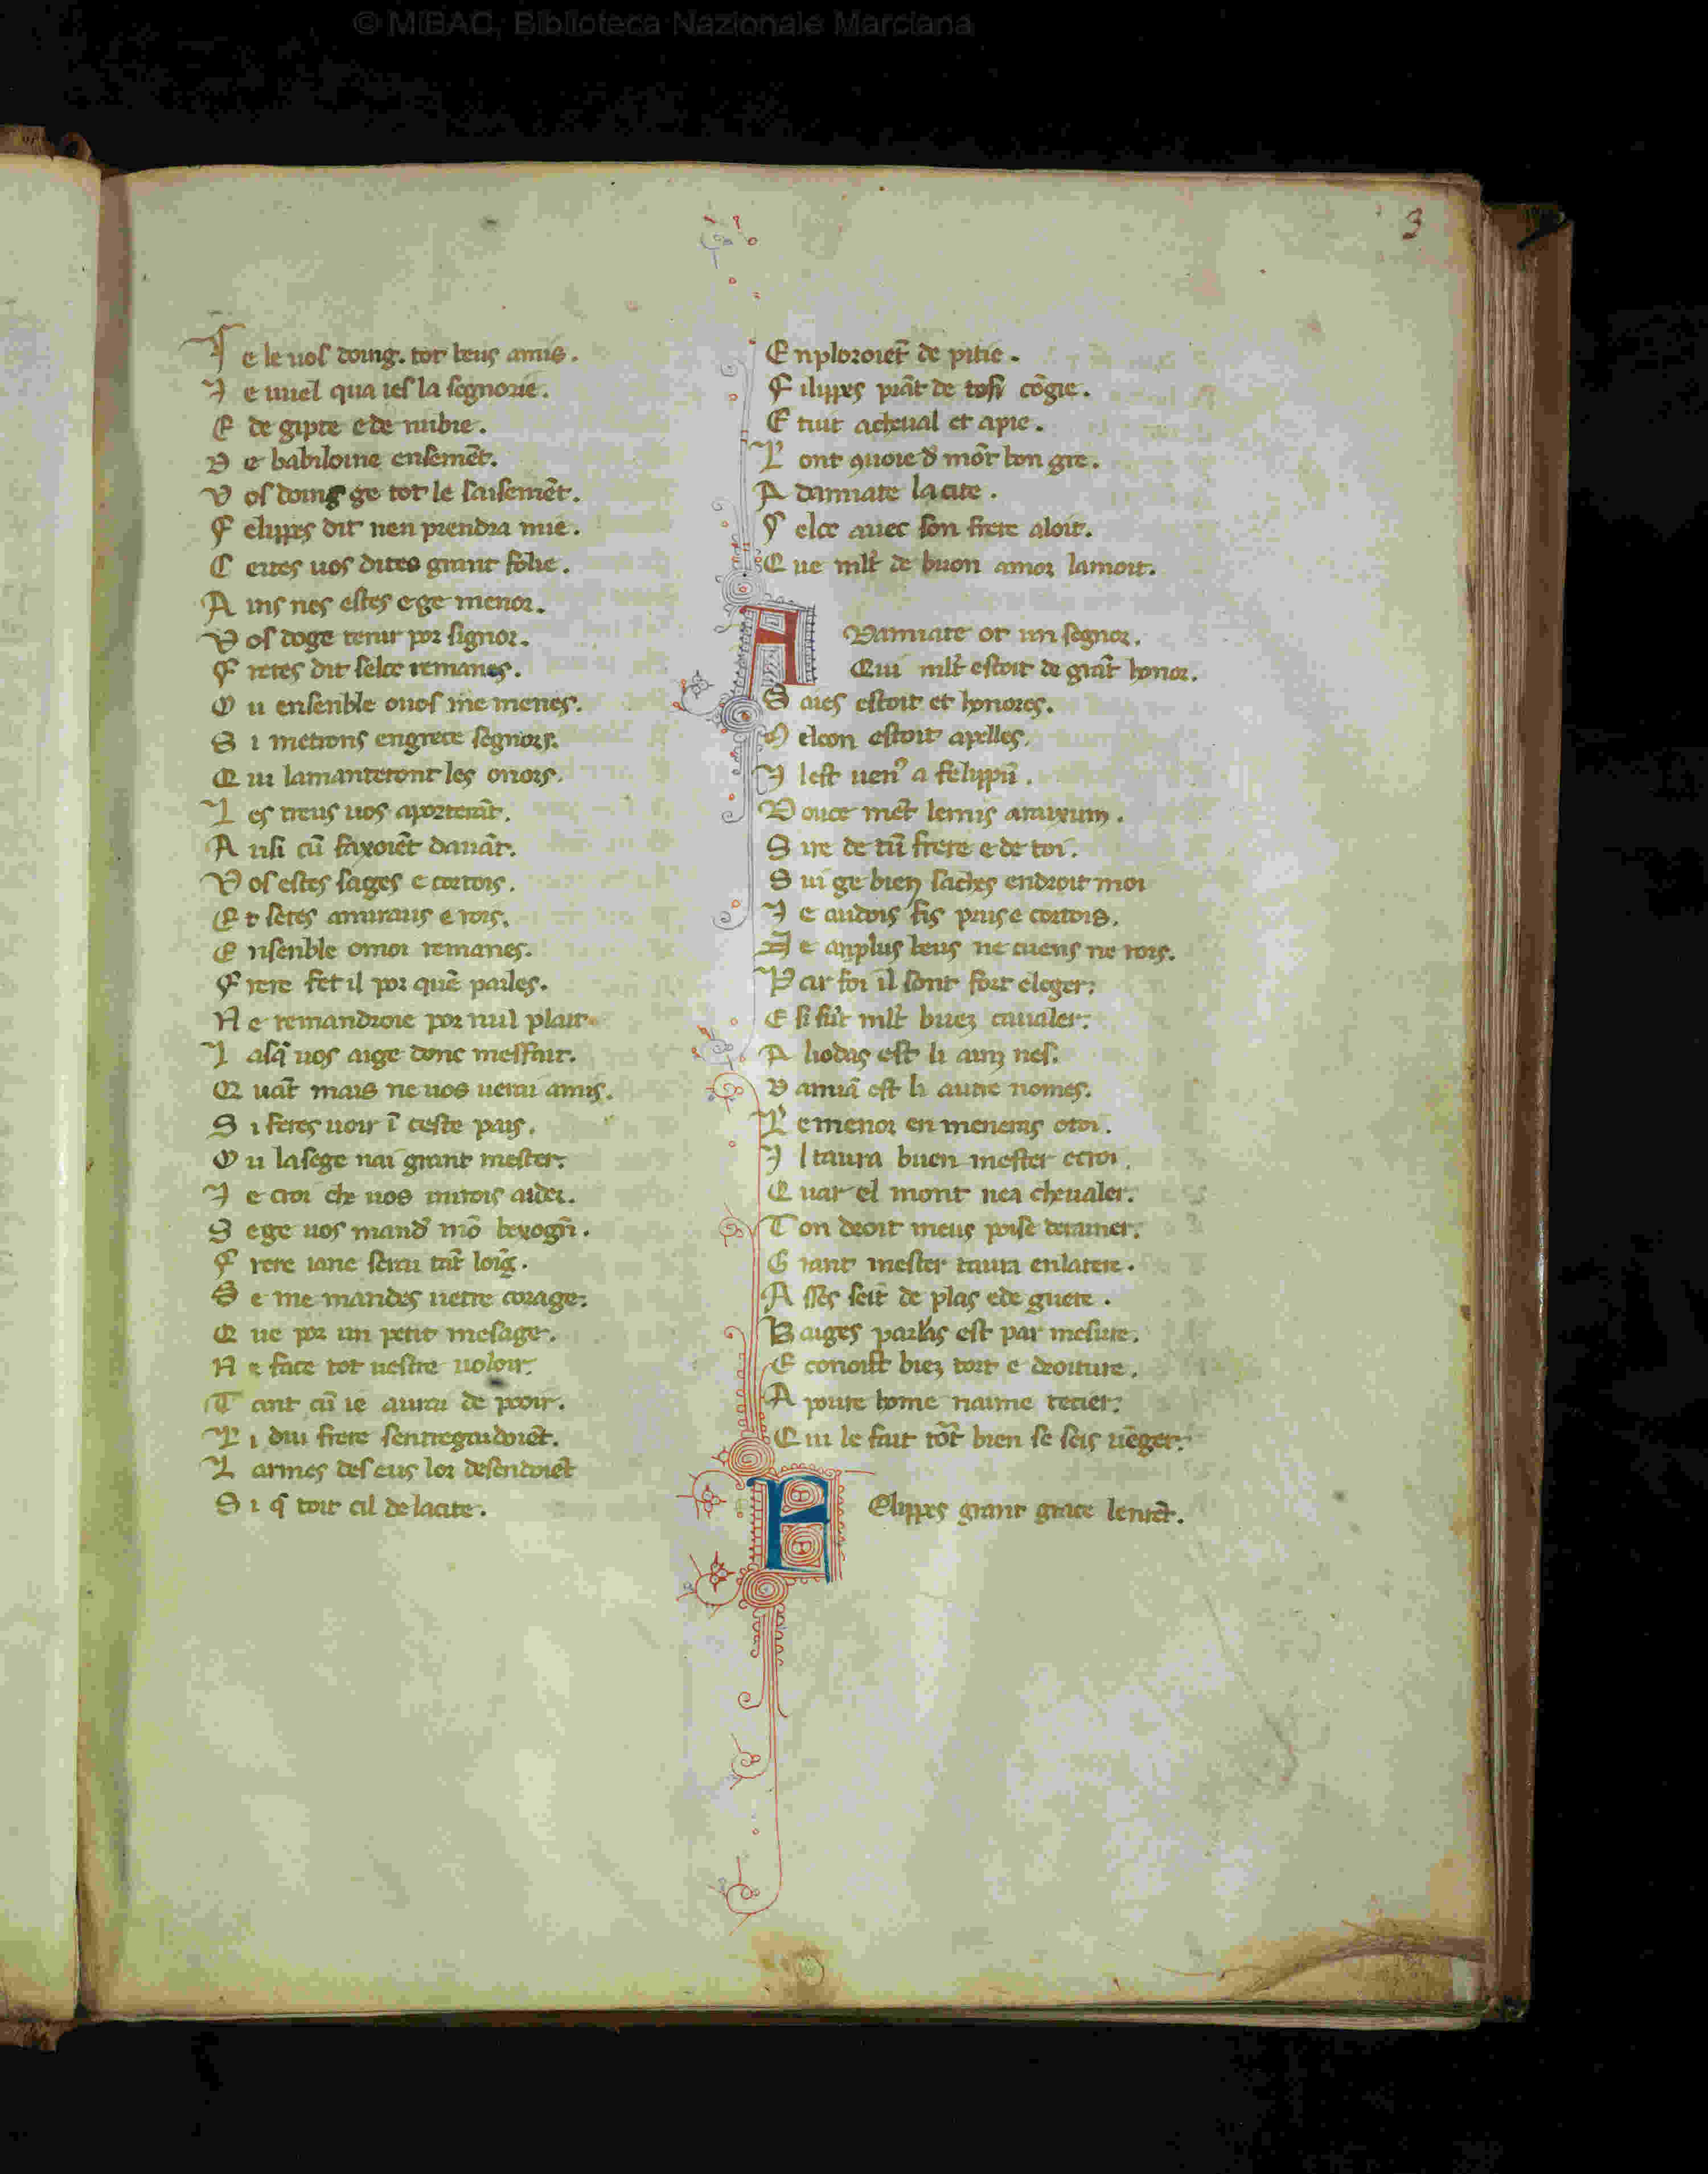 © MiBAC, Biblioteca Nazionale Marciana
3
I e le uos doing. tot beus amis.
I e uuel qua ies la segnorie.
E de gipte e de nubie.
D e babiloine ensemēt.
V os doing ge tot le saisemēt.
F elippes dit nen prendra mie.
C ertes uos dites grant folie.
A ins nes estes e ge menor.
V os doge tenir por signor.
F reres dit selce remanes.
O u ensenble ouos me menes.
S i metrons en grece segnors.
Q ui la manteront les onors.
L es treus uos aporterāt.
A usi cū faxoiēt dauāt.
V os estes sages e cortois.
E t seres amiraus e rois.
E nsenble omoi remanes.
F rere fet il por quē parles.
N e remandroie por nul plait.
I asq̄ uos aige donc meffait.
Q uāt mais ne uos uerai amis.
S i feres uoir ī ceste pais.
O u la sege nai grant mester.
I e croi che uos mirois aider.
S e ge uos mand mō bexogñ.
F rere ia ne serai tāt loīg.
S e me mandes uetre corage.
Q ue por un petit mesage.
N e face tot uestre uoloir.
T ant cū ie aurai de pooir.
L i dui frere sentregardoiēt.
L armes des eus lor desendoiēt
S i q̄ toit cil de la cite.
E nploroiēt de pitie.
F ilippes prāt de tosī cōgie.
E tuit acheual et apie.
L ont 9uoie d mōt bon gre.
A damiate la cite.
S elce auec son frere aloit.
Q ue mlt de buon amor lamoit.
A Damiate ot un segnor.
Qui mlt estoit de grāt honor.
S aies estoit et honores.
M elcon estoit apelles.
I l est uen9 a felippū.
D ouce mēt le mis a raixum.
S ire de tū frere e de toi.
S ui ge bien saches endroit moi
I e au dois fis pruis e cortois.
D e anplus beus ne cuens ne rois.
P ar foi il sont fort e leger.
E si sūt mlt buez caualer.
A liodas est li ainz nes.
D amiā est li autre nomes.
L e menor en meneras otoi.
I l taura buen mester ecroi.
Q uar el mont nea cheualer.
T on droit meus poise deramer.
G rant mester taura en la tere.
A sses seit de plas e de guere.
B aiges parlas est par mesure.
E conoist biez tort e droiture.
A poure home naime tecier.
Q ui le fait tōt bien se seis uēger.
F Elippes grant grace lenrēt.